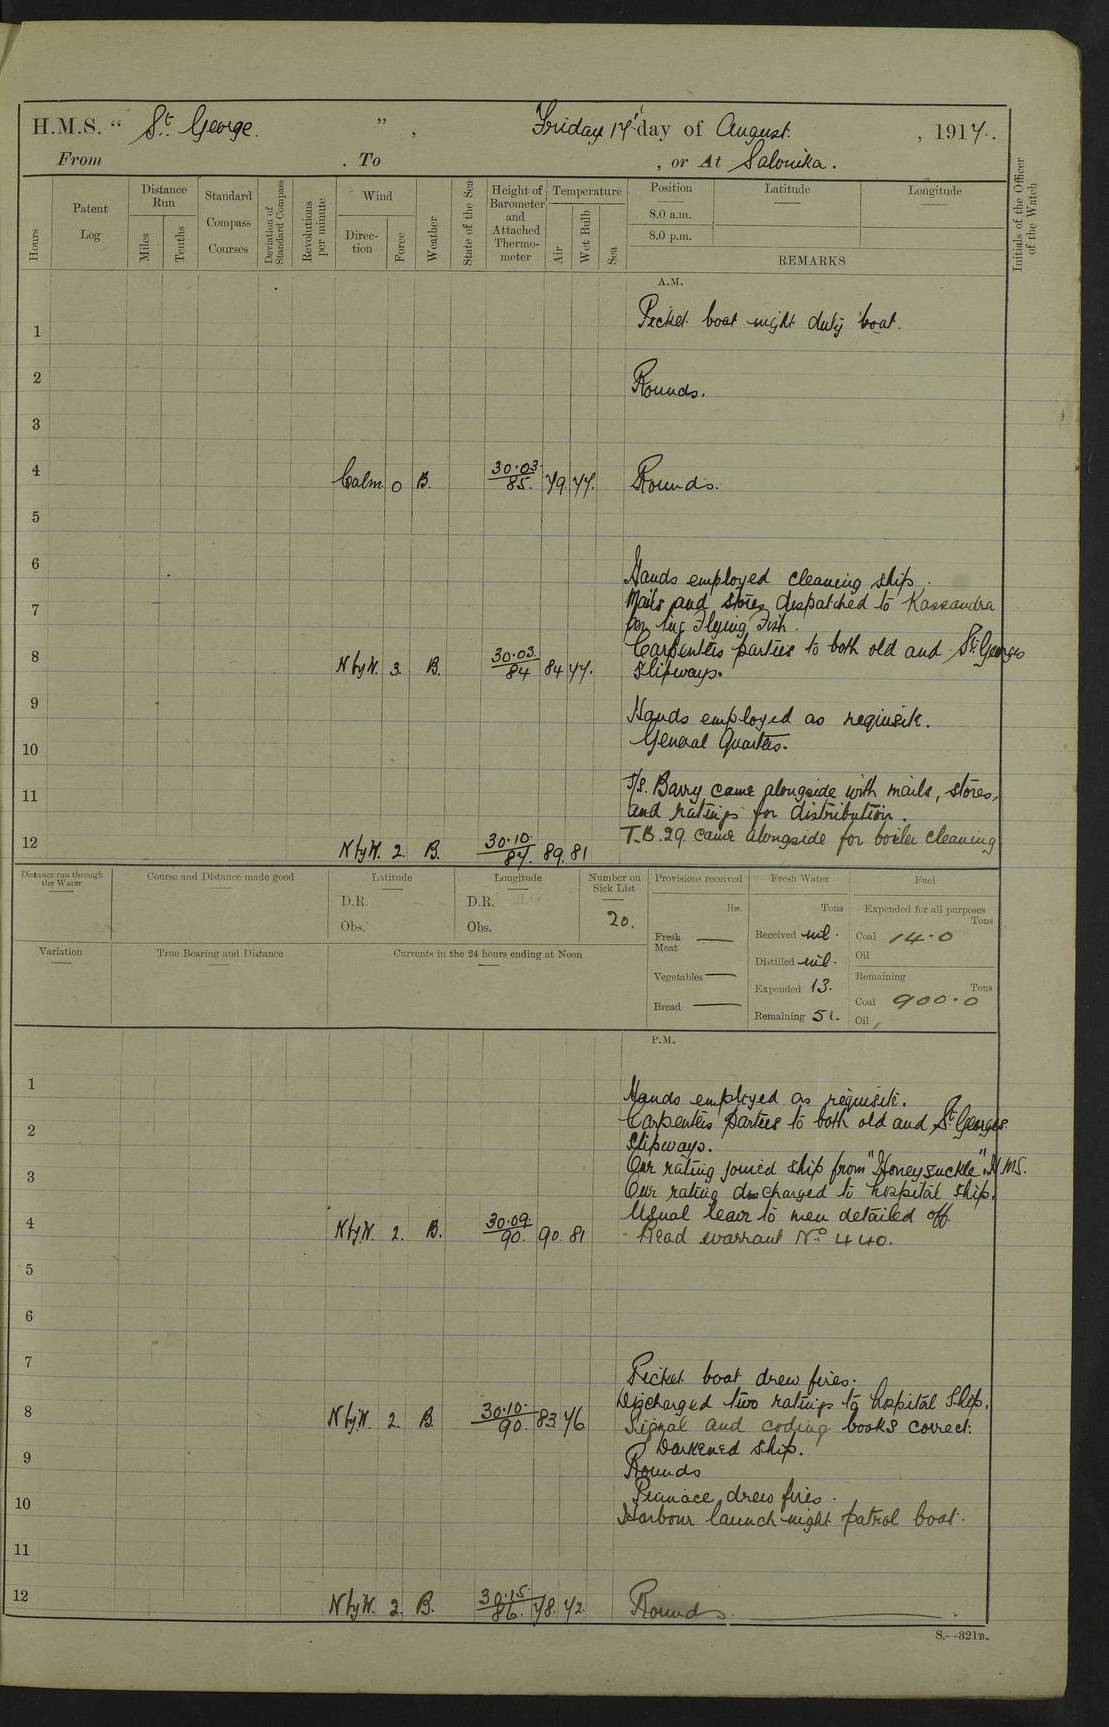 H.M.S. “ St. George. ” , Friday 17th day of August. , 1917.
From . To , or At Salonika.
Hours
Patent Log
Distance Run
Miles
Tenths
Standard Compass Courses
Deviation of Standard Compass
Revolutions per minute
Wind
Direction
Force
Weather
State of the Sea
Height of Barometer and Attached Thermometer
Temperature
Air
Wet Bulb
Sea
Position Latitude Longitude
8.0 a.m.
8.0 p.m.
REMARKS
Initials of the Officer of the Watch
A.M.
1 Picket boat night duty boat.
2 Rounds.
3
4 Calm 0 B. 30.03/85. 79 77. Rounds.
5
6 Hands employed cleaning ship.
7 Mails and stores dispatched to Kassandra
per tug Flying Fish.
8 Carpenters parties to both old and St. Georges
N by W. 3. B. 30.03./84 84 77. slipways.
9 Hands employed as requisite.
10 General Quarters.
11 S/S. Barry came alongside with mails, stores,
and ratings for distribution.
12 N by W. 2. B. 30.10./87. 89. 81 T.B. 29. came alongside for boiler cleaning
Distance run through the Water
Course and Distance made good
Latitude
D.R.
Obs.
Longitude
D.R.
Obs.
Number on Sick List
20.
Provisions received
lbs.
Fresh Meat —
Vegetables —
Bread —
Fresh Water
Tons
Received nil.
Distilled nil.
Expended 13.
Remaining 51.
Fuel
Expended for all purposes
Tons
Coal 14.0
Oil
Remaining
Tons
Coal 900.0
Oil
Variation
True Bearing and Distance
Currents in the 24 hours ending at Noon
P.M.
1 Hands employed as requisite.
Carpenters parties to both old and St. Georges
2 slipways.
One rating joined ship from "Honeysuckle". H.M.S.
3 One rating discharged to hospital ship.
4 Usual leave to men detailed off.
N by W. 2. B. 30.09./90. 90. 81 Read warrant No. 440.
5
6
7 Picket boat drew fires.
8 Discharged two ratings to hospital ship.
N by W. 2. B. 30.10./90. 83 76 Signal and coding books correct.
Darkened ship.
9 Rounds
10 Pinnace drew fires.
Harbour launch night patrol boat.
11
12 N by W. 2. B. 30.15./86. 78. 72. Rounds.
S.—321B.